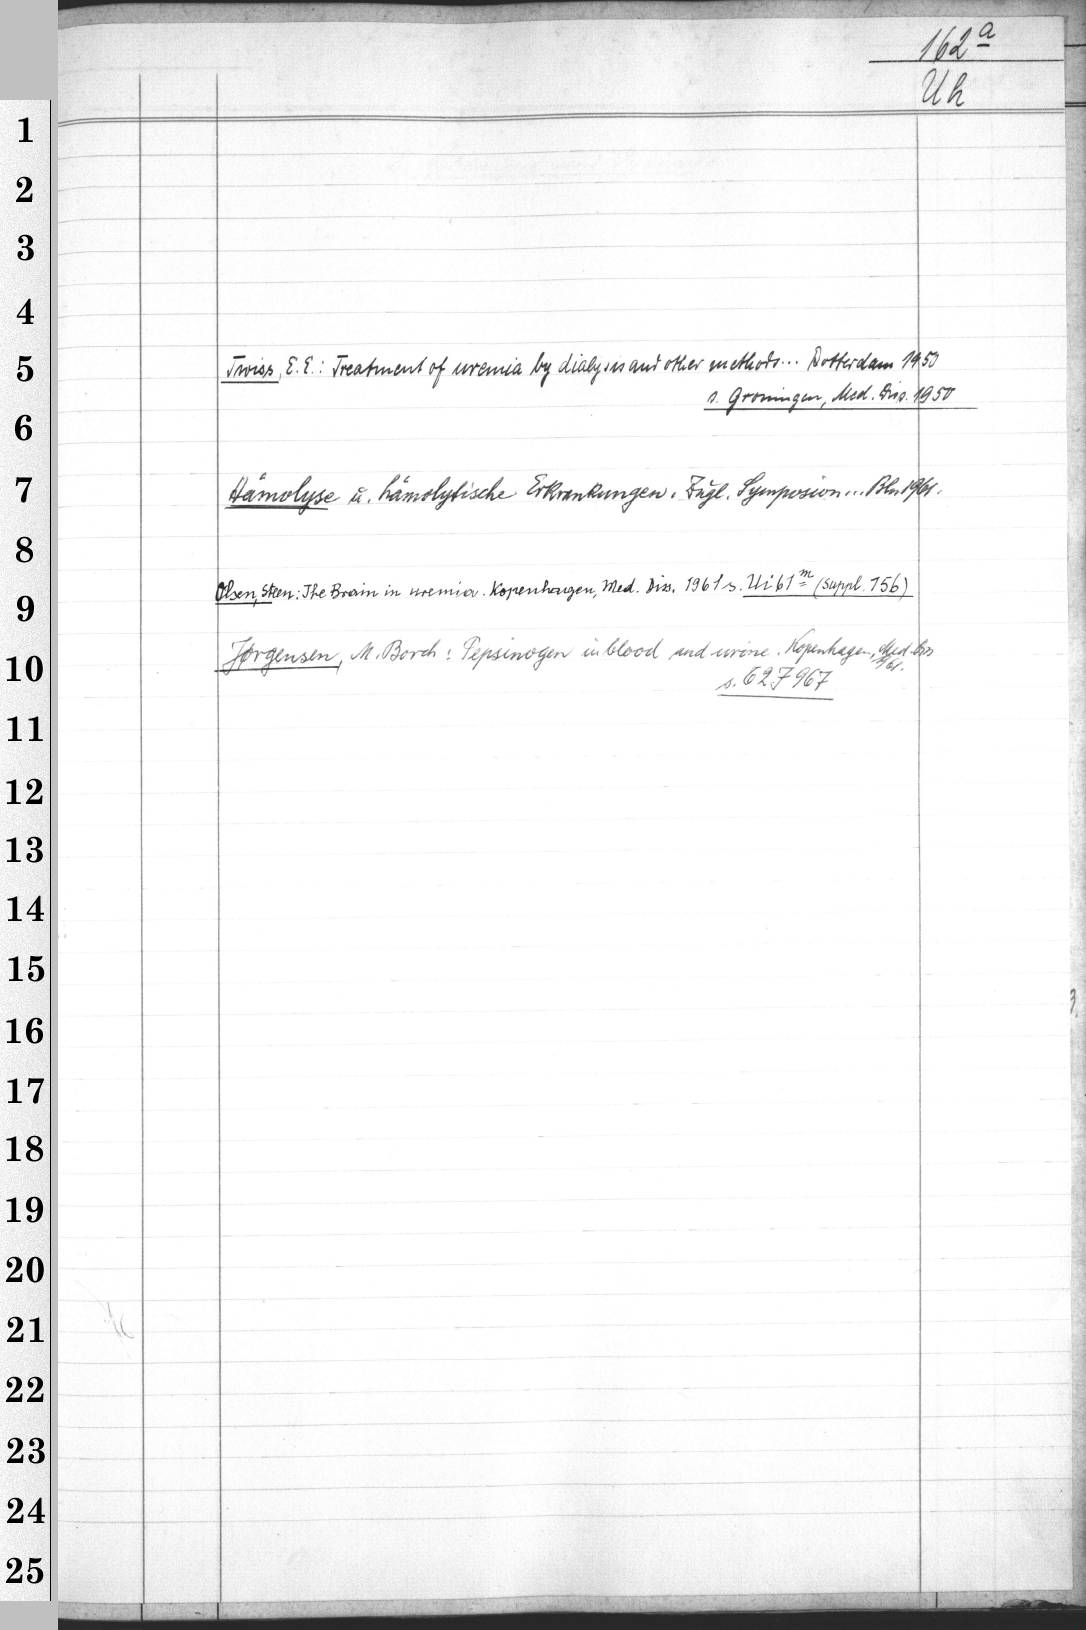 162a
Uh
1
2
3
4
5
Twiss, E. E.: Treatment of uremia by dialysis and other methods... Rotterdam 1950
s. Groningen, Med. Diss. 1950
6
7
Hämolyse u. hämolytische Erkrankungen. Zugl. Symposion... Bln 1961.
8
9
Olsen, Steen: The Brain in uremia. Kopenhagen, Med. Diss. 1961 s. Ui 61m (Suppl. 156)
10
Jørgensen, M. Borch: Pepsinogen in blood and urine. Kopenhagen, Med. Diss
s. 627967
11
12
13
14
15
16
17
18
19
20
21
22
23
24
25